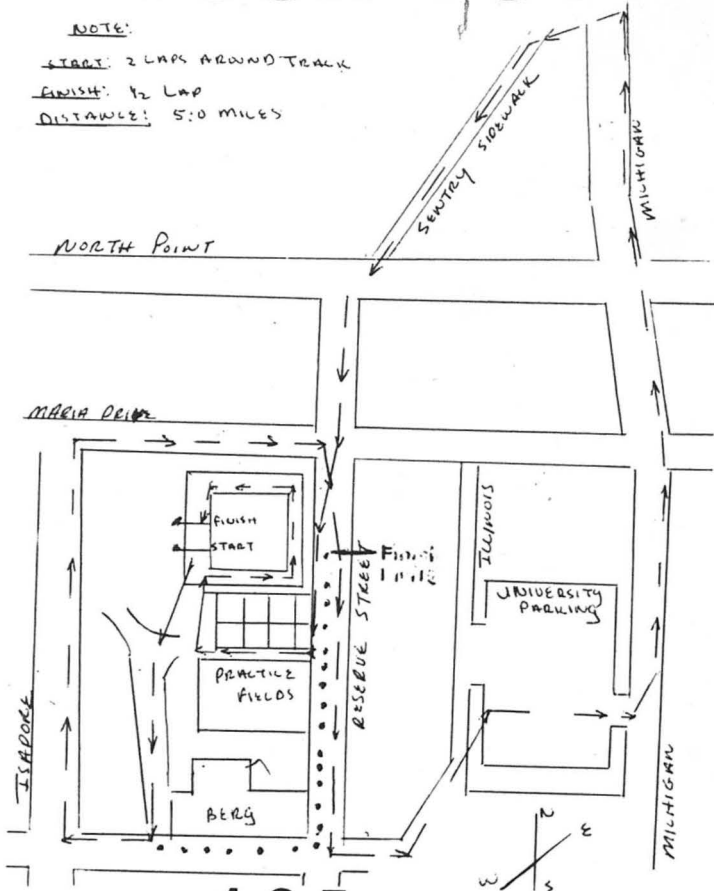 NOTE:
START: 2 LAPS AROUND TRACK
FINISH: 1/2 LAP
DISTANCE: 5.0 MILES
SENTRY SIDEWALK
MICHIGAN
NORTH POINT
MARIA DRIVE
FINISH
START
ILLINOIS
UNIVERSITY
PARKING
RESERVE STREET
PRACTICE
FIELDS
ISADORE
BERG
MICHIGAN
N
E
W
S